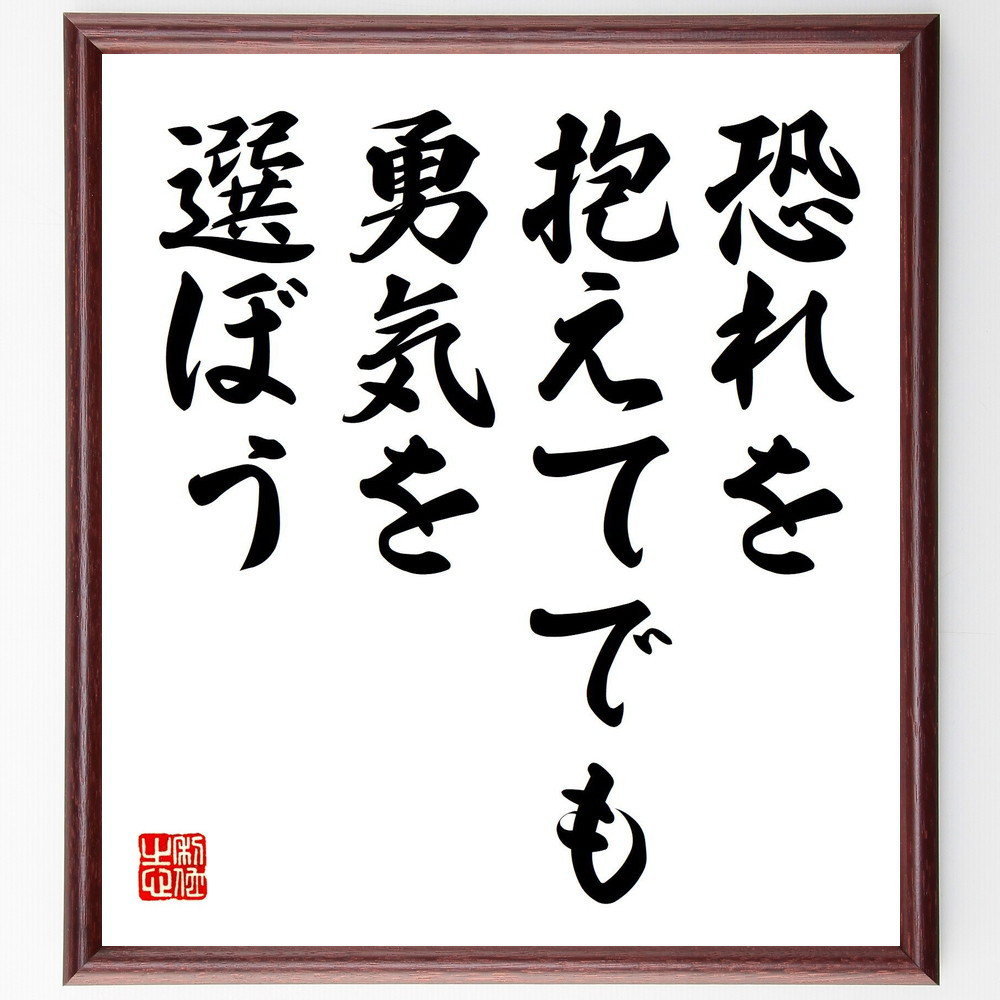 恐れを
抱えてでも
勇気を
選ぼう